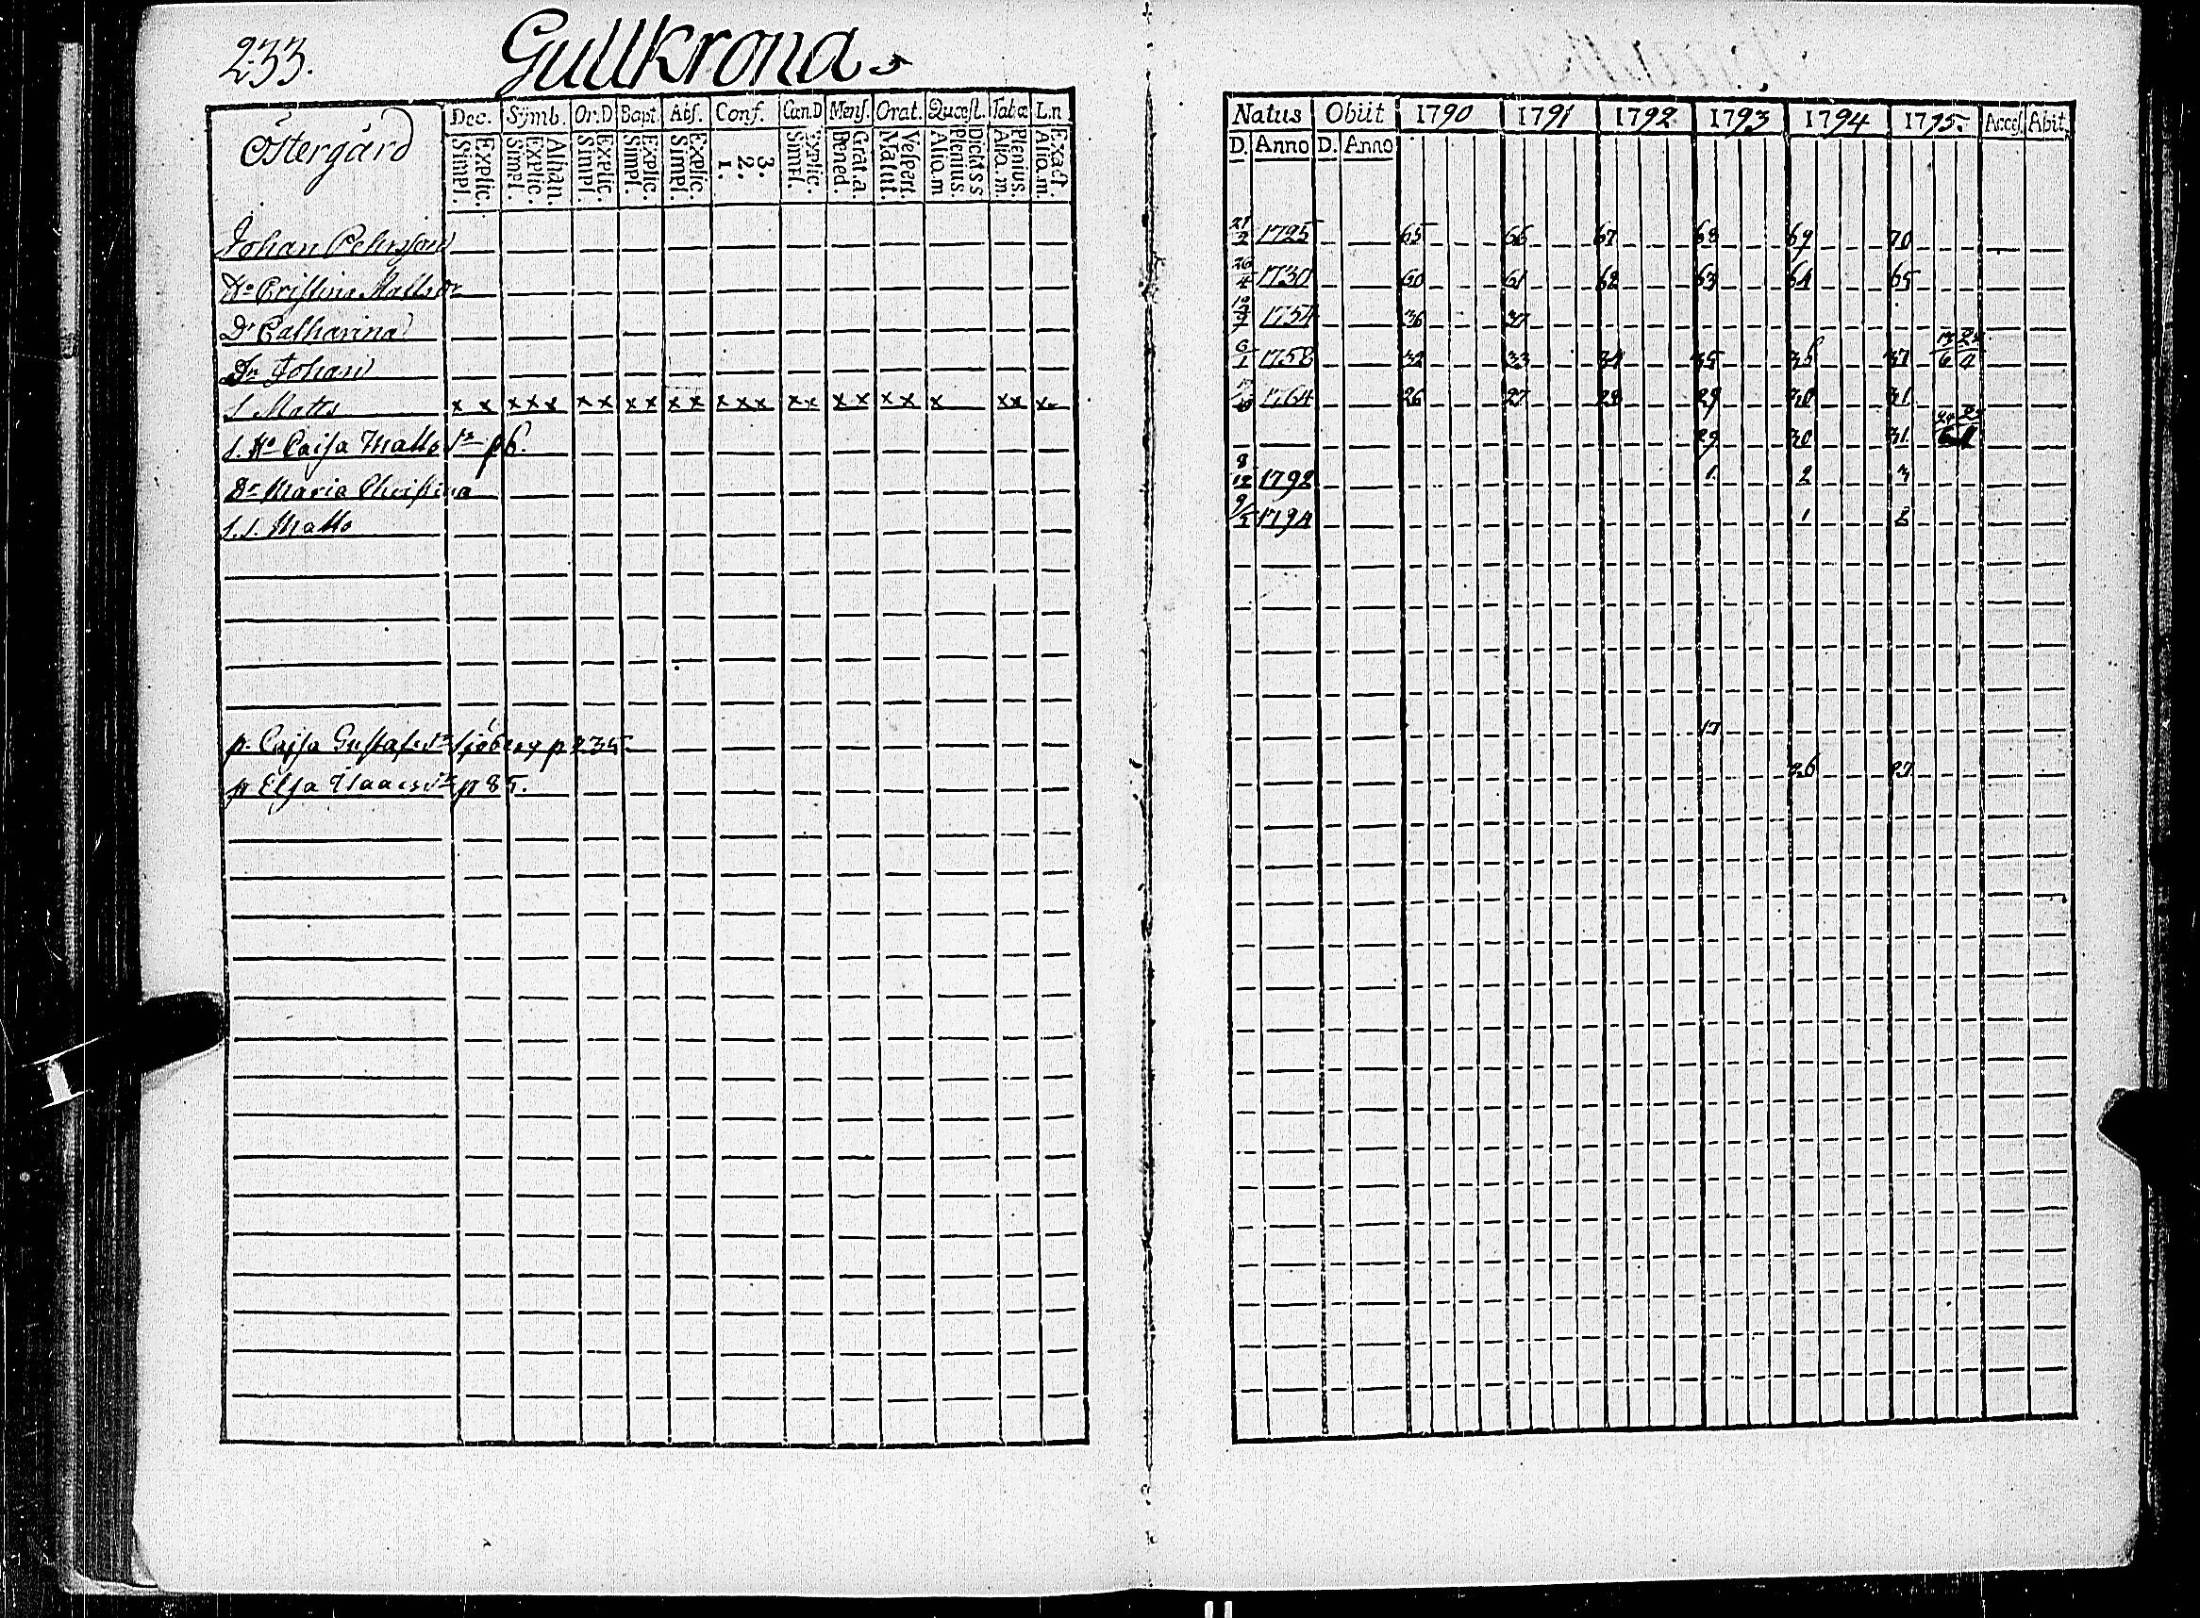 233.
Gullkrona
Östergård
Dec. Symb. Or.D Bapt. Abs. Conf. Can.D Mens. Orat. Quæst. Tabæ L.n
Simpl. Explic. Simpl. Explic. Athan. Simpl. Explic. Simpl. Explic. Simpl. Explic. 1. 2. 3. Simpl. Explic. Bened. Grat.a Matut. Vespert. Alio.m Plenius. Alio.m. Plenius. Alio.m. Exact.
Natus Obiit 1790 1791 1792 1793 1794 1795. Acces. Abit.
D. Anno D. Anno
Johan Pehrsson 1725 65 66 67 68 69 70
Hu Cristina Matts dr 26/4 1730 60 61 62 63 64 65
Dr Catharina 1754 36 37
Johan 6/1 1758 32 33 34 35 36 37
S Matts x x x x x x x x x x x x x x x x x x x x x x x x 1764 26 27 28 29 30 31
S. Hu Caisa Matts dr p 6. 29 30 31.
Dr Maria Christina 8/12 1792 1. 2 3
S.S. Matts 9/5 1794 1 2
p. Cajsa Gustafs dr Sjöberg p 235 17
p Elsa Isaacs dr p 85. 26 27